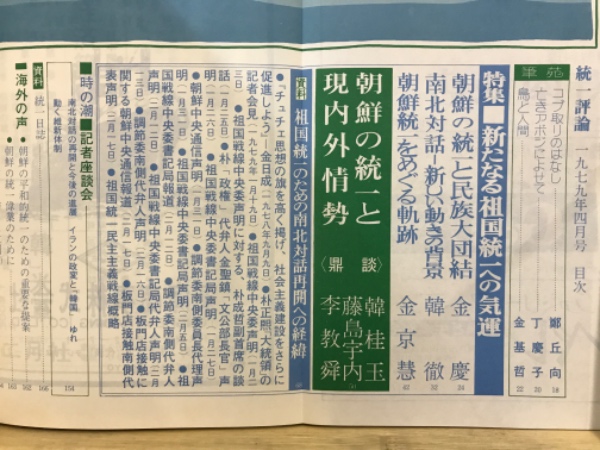 統一評論 一九七九年四月号 目次
筆苑
コブ取りのはなし 鄭丘向 18
亡きアボジによせて 丁慶子 20
鳥と人間 金基哲 22
特集■新たなる祖国統一への気運
朝鮮の統一と民族大団結 金慶 24
南北対話―新しい動きの背景 韓徹 32
朝鮮統一をめぐる軌跡 金京慧 42
朝鮮の統一と
現内外情勢
〈鼎談〉
韓桂玉
藤島宇内
李教舜
資料 祖国統一のための南北対話再開への経緯
●「チュチェ思想の旗を高く掲げ、社会主義建設をさらに
促進しよう」―金日成
●朴正熙大統領の
記者会見(一九七九年一月十九日)●祖国戦線中央委声明(一月二
三日)●祖国戦線中央委声明に対する、朴成哲副首席の談
話(一月二五日)●朴「政権」代弁人金聖鎮「文公部長官」声
明(一月二六日)●祖国戦線中央委書記局声明(一月二七日)
●朝鮮中央通信声明
●調節委南側委員長代理声
明
●祖国戦線中央委書記局声明(二月五日)●祖
国戦線中央委書記局報道
●調節委南側代弁人
声明(二月一二日)●祖国戦線中央委書記局代弁人声明(二月
一三日)●調節委南側代弁人声明(二月一六日)●板門店接触に
関する朝鮮中央通信報道
●板門店接触南側代
表声明
●祖国統一民主主義戦線概略
■時の潮■記者座談会
南北対話の再開と今後の進展 イランの政変と「韓国」 ゆれ
動く維新体制 154
資料 統一日誌 166
■海外の声
●朝鮮の平和的統一のための重要な提案
●朝鮮の統一偉業のために